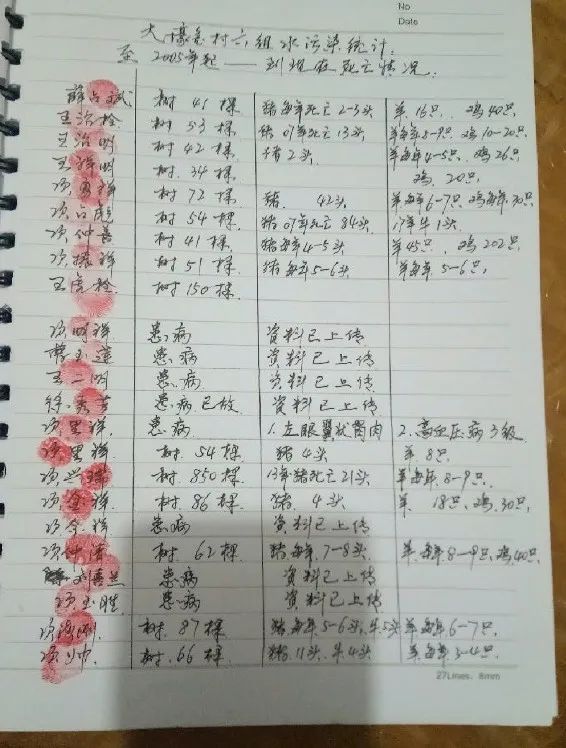 No
Date
大壕兔村六组水污染统计.
至 2005年起——到现在死亡情况.
薛占斌 树 41 棵 猪每年死亡2-3头 羊 16只, 鸡40只,
王治栓 树 53 棵 猪 07年死亡 13头 羊每年8-9只 鸡10-20只.
王治明 树 42 棵 猪2头, 羊每年4-5只, 鸡26只
王祥明 树 34 棵 鸡 20只.
项 祥 树 72 棵 猪 42头 羊每年6-7只, 鸡每年30只
项占彪 树 54 棵 猪07年死亡 84头 17年牛1头
项仲善 树 41 棵 猪每年4-5头 羊45只, 鸡202只
项 祥 树 51 棵 猪每年5-6头 羊每年5-6只,
王虎栓 树 150 棵
项明祥 患病 资料已上传
曹玉莲 患病 资料已上传
王二明 患病 资料已上传
徐秀芳 患病已故 资料已上传
项里祥 患病 1.左眼翼状胬肉 2.高血压病3级
项里祥 树 54棵 猪4头 羊8只
项兴 树 850棵 13年猪死亡21头 羊每年8-9只.
项金祥 树 86 棵 猪 4头 羊 18只, 鸡30只,
项金祥 患病 资料已上传
项 清 树 62棵 猪每年7-8头 羊每年8-9只, 鸡40只,
刘喜兰 患病 资料已上传
项玉胜 患病 资料已上传
项 刚 树 87棵 猪每年5-6头, 牛5头 羊每年6-7只,
项帅 树 66棵 猪11头 牛4头 羊每年3-4只.
27Lines, 8mm